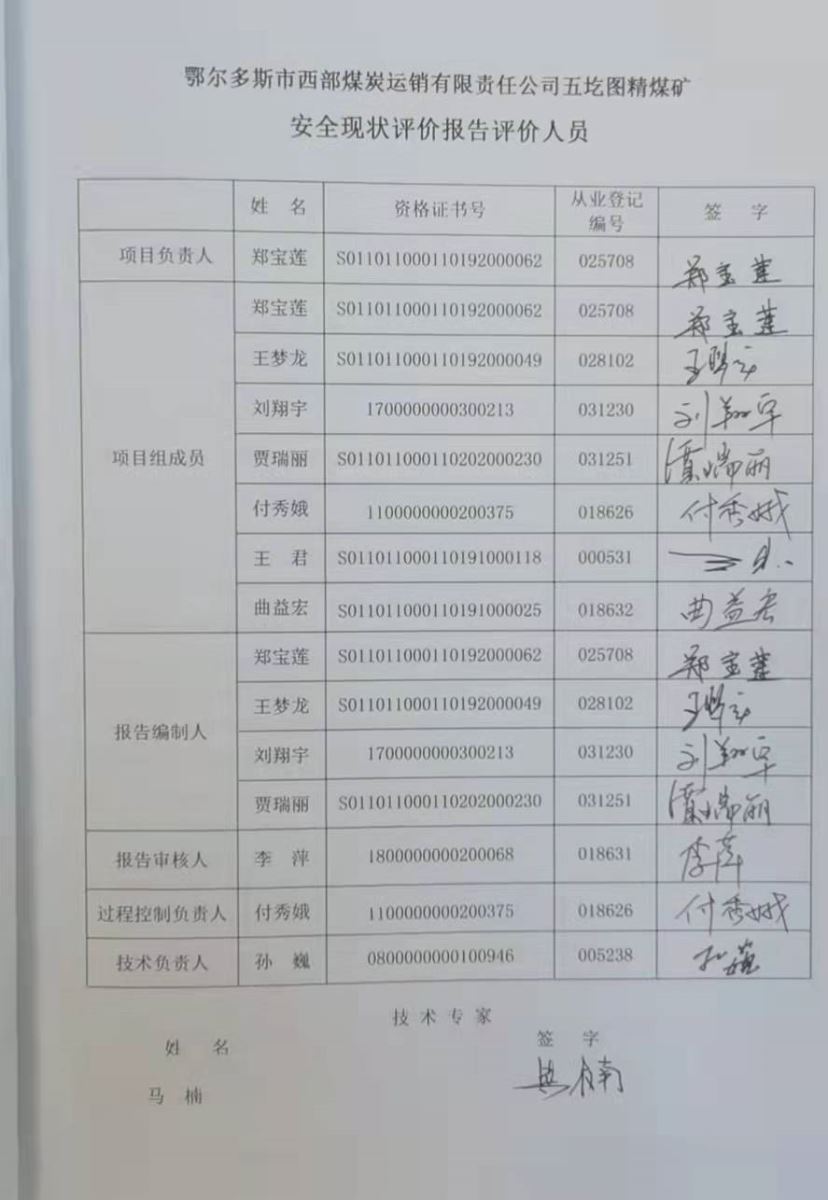 鄂尔多斯市西部煤炭运销有限责任公司五圪图精煤矿
安全现状评价报告评价人员
姓 名 资格证书号 从业登记编号 签 字
项目负责人 郑宝莲 S011011000110192000062 025708 郑宝莲
项目组成员 郑宝莲 S011011000110192000062 025708 郑宝莲
王梦龙 S011011000110192000049 028102 王梦龙
刘翔宇 1700000000300213 031230 刘翔宇
贾瑞丽 S011011000110202000230 031251 贾瑞丽
付秀娥 1100000000200375 018626 付秀娥
王 君 S011011000110191000118 000531 王君
曲益宏 S011011000110191000025 018632 曲益宏
报告编制人 郑宝莲 S011011000110192000062 025708 郑宝莲
王梦龙 S011011000110192000049 028102 王梦龙
刘翔宇 1700000000300213 031230 刘翔宇
贾瑞丽 S011011000110202000230 031251 贾瑞丽
报告审核人 李 萍 1800000000200068 018631 李萍
过程控制负责人 付秀娥 1100000000200375 018626 付秀娥
技术负责人 孙 巍 0800000000100946 005238 孙巍
技 术 专 家
姓 名 签 字
马 楠 马楠